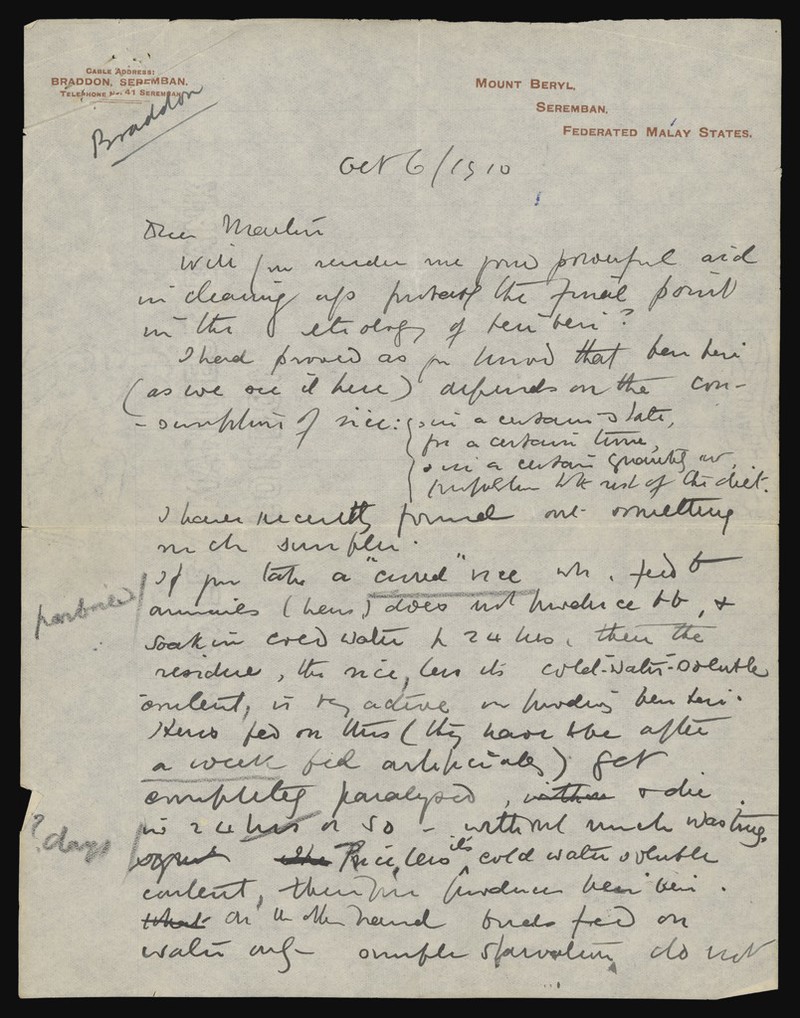 CABLE ADDRESS:
BRADDON, SEREMBAN.
TELEPHONE No. 41 SEREMBAN
Braddon
MOUNT BERYL,
SEREMBAN,
FEDERATED MALAY STATES.
Oct 6/1910
Dear Martin
Will you render me your powerful aid
in clearing up the final point
in the etiology of beri beri?
I had proved as you know that beri beri
(as we see it here) depends on the con-
-sumption of rice: in a certain state,
for a certain time,
in a certain quantity or
proportion to the rest of the diet.
I have recently found out something
much simpler.
parboiled
If you take a "cured" rice wh. feed to
animals (hens) does not produce bb, &
soak in cold water for 24 hrs, then the
residue, the rice, less its cold-water-soluble
content, is very active in producing beri beri.
Hens fed on this (they have to be after
a week fed artificially) get
completely paralysed, within & die
? days
in 24 hrs or so - without much wasting.
The Rice, less its cold water soluble
content, therefore produces beri beri.
What On the other hand birds fed on
water only - simple starvation do not